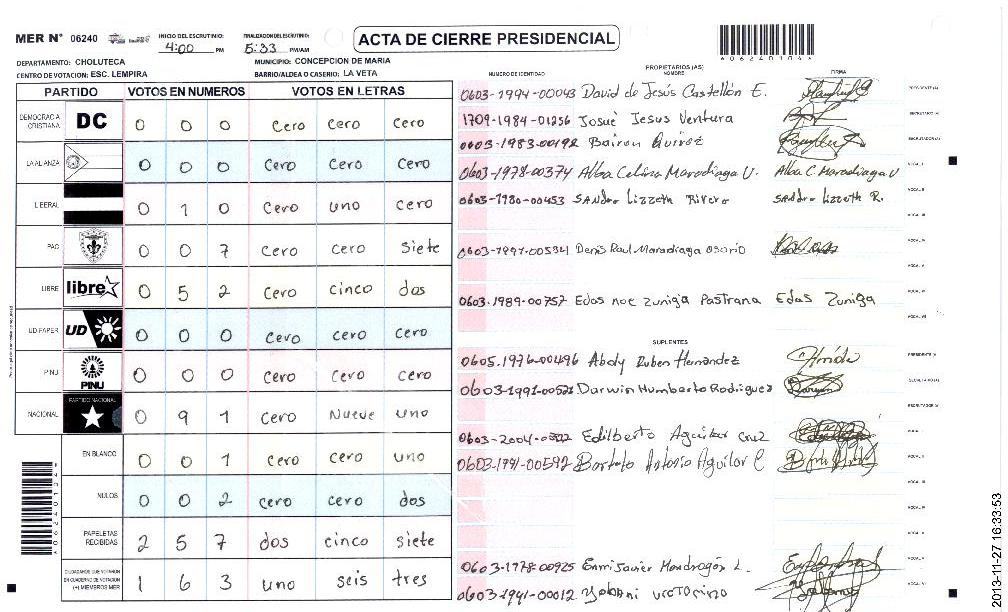 MER N° 06240
INICIO DEL ESCRUTINIO: 4:00 PM
FINALIZACION DEL ESCRUTINIO: 5:33 PM/AM
ACTA DE CIERRE PRESIDENCIAL
DEPARTAMENTO: CHOLUTECA
MUNICIPIO: CONCEPCION DE MARIA
CENTRO DE VOTACION: ESC. LEMPIRA
BARRIO/ALDEA O CASERIO: LA VETA
PARTIDO VOTOS EN NUMEROS VOTOS EN LETRAS
DEMOCRACIA CRISTIANA DC 0 0 0 Cero Cero Cero
LA ALIANZA 0 0 0 Cero Cero Cero
LIBERAL 0 1 0 Cero uno cero
PAC 0 0 7 Cero Cero Siete
LIBRE libre 0 5 2 Cero cinco dos
UD FAPER UD 0 0 0 Cero cero cero
PINU PINU 0 0 0 Cero Cero cero
NACIONAL PARTIDO NACIONAL 0 9 1 Cero Nueve uno
EN BLANCO 0 0 1 cero cero uno
NULOS 0 0 2 cero cero dos
PAPELETAS RECIBIDAS 2 5 7 dos cinco siete
CIUDADANOS QUE VOTARON EN CUADERNO DE VOTACION (+) MIEMBROS MER 1 6 3 uno seis tres
NUMERO DE IDENTIDAD PROPIETARIOS (AS) NOMBRE FIRMA
0603-1994-00043 David de Jesús Castellón E. PRESIDENTE (A)
1709-1984-01256 Josué Jesus Ventura SECRETARIO (A)
0603-1983-00192 Bairon Quiroz ESCRUTADOR (A)
0603-1978-00374 Alba Celina Maradiaga U. Alba C. Maradiaga U VOCAL I
0603-1980-00453 SANdra Lizzeth Rivera SANdra Lizzeth R. VOCAL II
VOCAL III
0603-1997-00534 Denis Raul Maradiaga Osorio VOCAL IV
VOCAL V
0603-1989-00757 Edas noe Zuniga Pastrana Edas Zuniga VOCAL VI
VOCAL VII
SUPLENTES
0605-1976-00496 Abdy Ruben Hernandez PRESIDENTE (A)
0603-1991-00521 Darwin Humberto Rodriguez SECRETARIO (A)
ESCRUTADOR (A)
Edilberto Aguilar Cruz VOCAL I
Antonio Aguilar VOCAL II
VOCAL III
VOCAL IV
VOCAL V
0603-1978-00925 Mondragón L. VOCAL VI
0603-1991-00012
40624010 4
2013-11-27 16:33:53